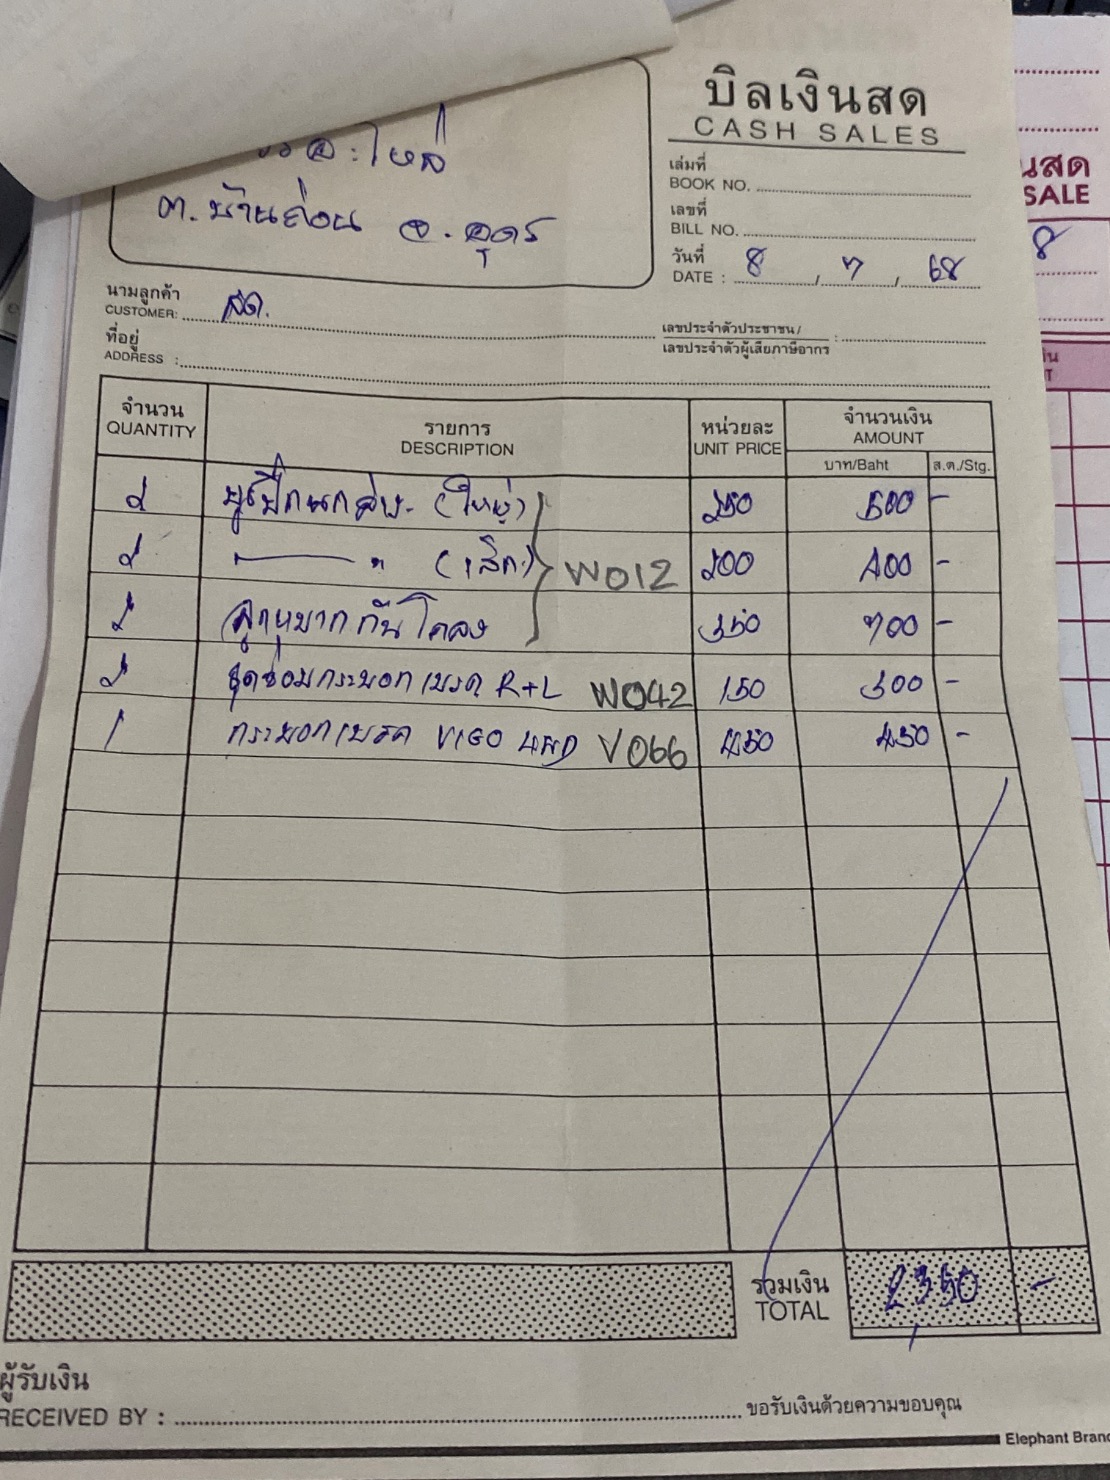 บิลเงินสด
CASH SALES
อะไหล่
ต.บ้านถ่อน จ.อุดร
เล่มที่
BOOK NO.
เลขที่
BILL NO.
วันที่
DATE : 8 / 7 / 68
นามลูกค้า
CUSTOMER: สด.
ที่อยู่
ADDRESS :
เลขประจำตัวประชาชน/
เลขประจำตัวผู้เสียภาษีอากร :
จำนวน รายการ หน่วยละ จำนวนเงิน
QUANTITY DESCRIPTION UNIT PRICE AMOUNT
บาท/Baht ส.ต./Stg.
2 บูชปีกนกล่าง (ใหญ่) 250 500 -
2 " (เล็ก) W012 200 400 -
2 ลูกหมากกันโคลง 350 700 -
2 ชุดซ่อมกระบอกเบรค R+L W042 150 300 -
1 กระบอกเบรค VIGO 4WD V066 450 450 -
รวมเงิน
TOTAL 2350 -
ผู้รับเงิน
RECEIVED BY :
ขอรับเงินด้วยความขอบคุณ
Elephant Brand
นสด
SALE
8